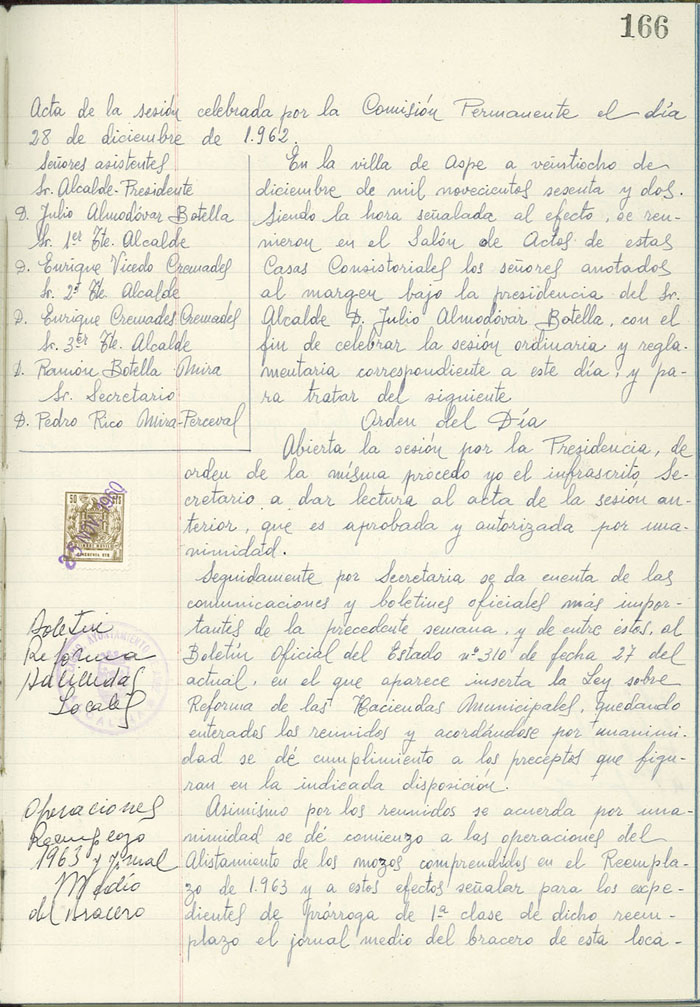 166
Acta de la sesión celebrada por la Comisión Permanente el día
28 de diciembre de 1.962
Señores asistentes
Sr. Alcalde-Presidente
D. Julio Almodóvar Botella
Sr. 1er Tte. Alcalde
D. Enrique Vicedo Cremades
Sr. 2º Tte. Alcalde
D. Enrique Cremades Cremades
Sr. 3er Tte. Alcalde
D. Ramón Botella Mira
Sr. Secretario
D. Pedro Rico Mira-Perceval
En la villa de Aspe a veintiocho de
diciembre de mil novecientos sesenta y dos.
Siendo la hora señalada al efecto, se reu-
nieron en el Salón de Actos de estas
Casas Consistoriales los señores anotados
al margen bajo la presidencia del Sr.
Alcalde D. Julio Almodóvar Botella, con el
fin de celebrar la sesión ordinaria y regla-
mentaria correspondiente a este día, y pa-
ra tratar del siguiente
Orden del Día
Abierta la sesión por la Presidencia, de
orden de la misma procedo yo el infrascrito Se-
cretario a dar lectura al acta de la sesion an-
terior, que es aprobada y autorizada por una-
nimidad.
50 CTS
25 NOV. 1960
Seguidamente por Secretaria se da cuenta de las
comunicaciones y boletines oficiales más impor-
tantes de la precedente semana, y de entre éstos, al
Boletín Oficial del Estado nº 310 de fecha 27 del
actual, en el que aparece inserta la Ley sobre
Reforma de las Haciendas Municipales, quedando
enterados los reunidos y acordándose por unanimi-
dad se dé cumplimiento a los preceptos que figu-
ran en la indicada disposición.
Boletin
Reforma
Haciendas
Locales
AYUNTAMIENTO
Asimismo por los reunidos se acuerda por una-
nimidad se dé comienzo a las operaciones del
Alistamiento de los mozos comprendidos en el Reempla-
zo de 1.963 y a estos efectos señalar para los expe-
dientes de prórroga de 1ª clase de dicho reem-
plazo el jornal medio del bracero de esta loca-
Operaciones
Reemplazo
1963 y jornal
Medio
del Bracero